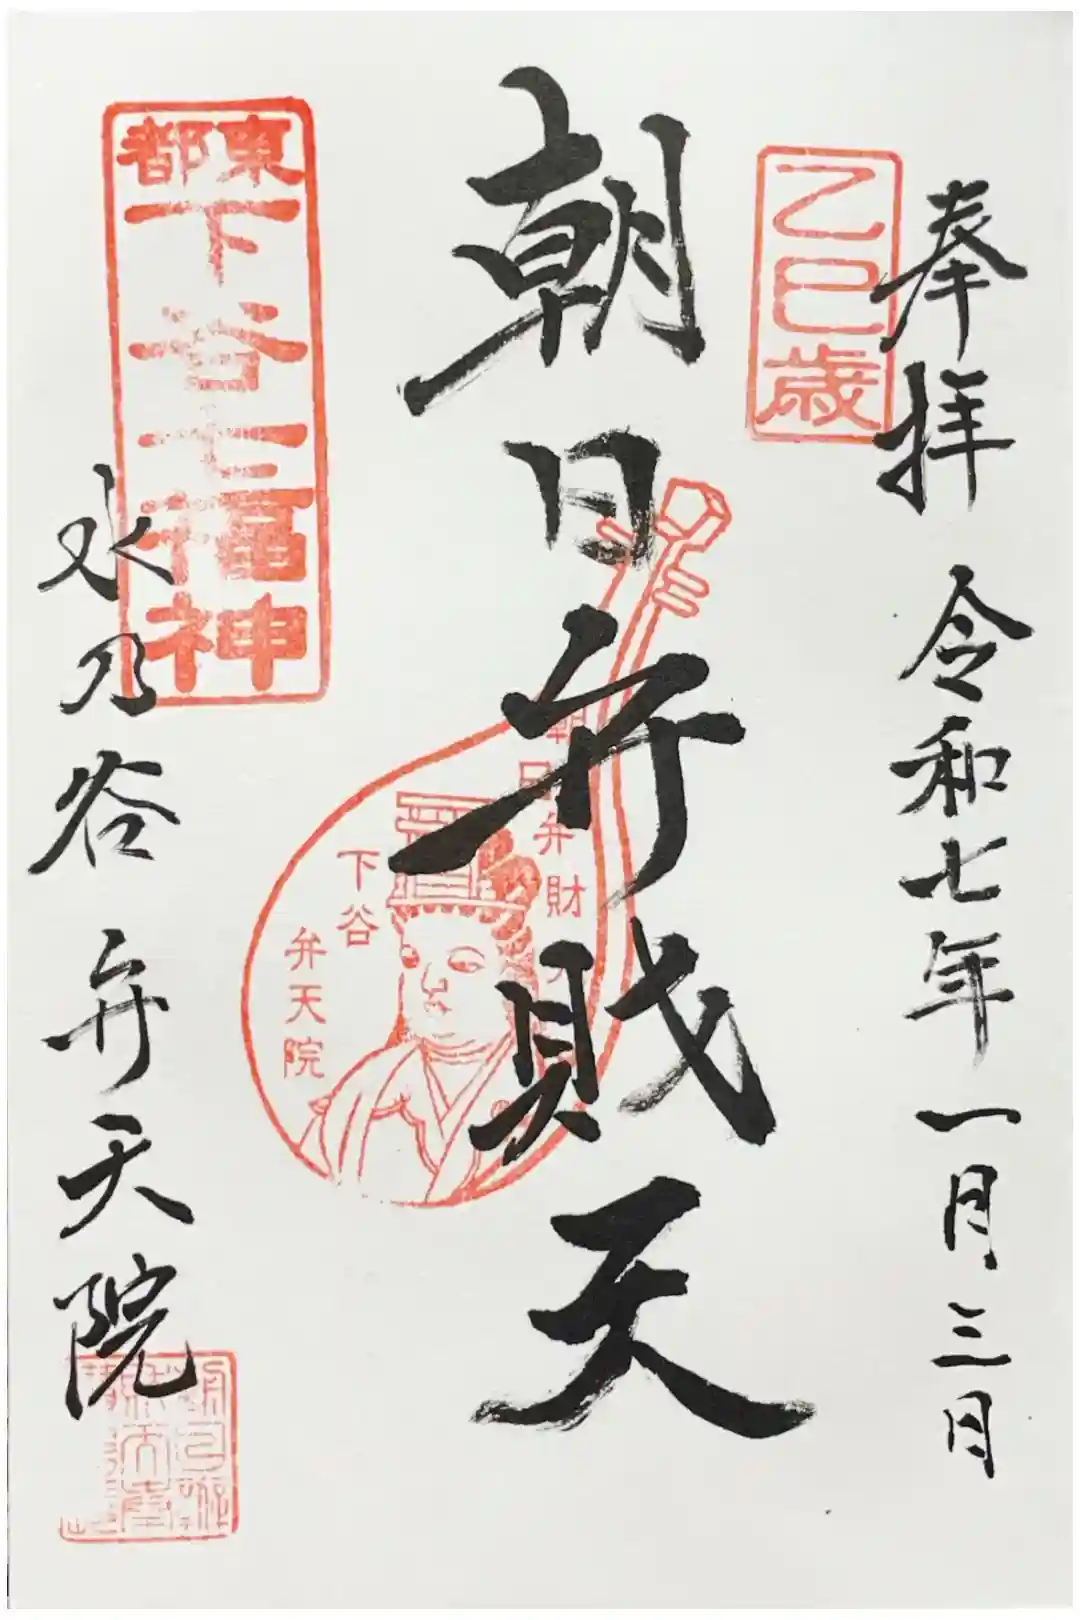 奉拝 令和七年一月三日
乙巳歳
朝日弁財天
朝日弁財天
下谷
弁天院
東都
下谷七福神
水乃谷弁天院